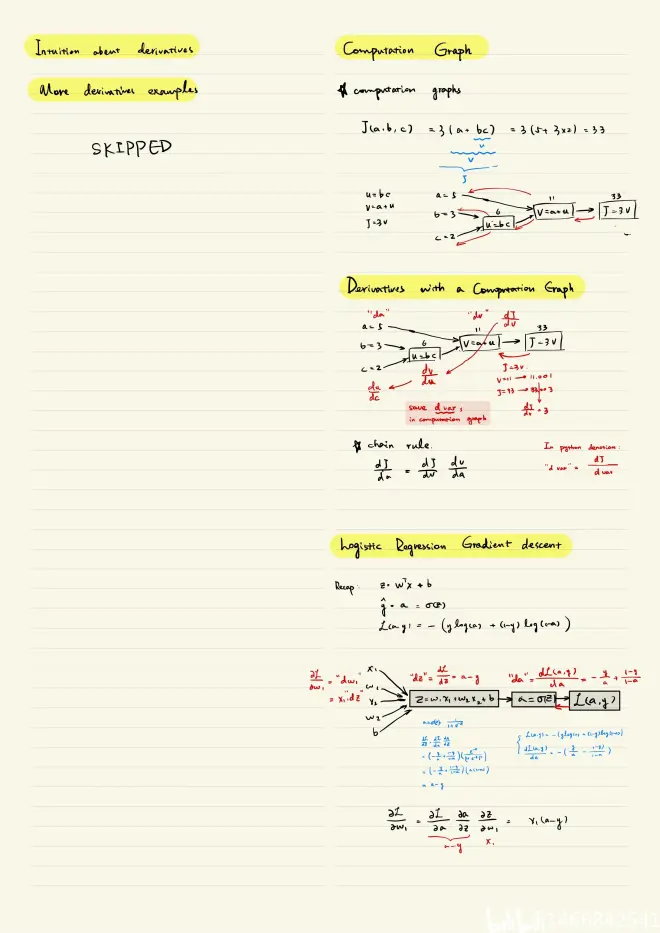 Intuition about derivatives
More derivatives examples
SKIPPED
Computation Graph
computation graphs
J(a,b,c) = 3(a+bc) = 3(5+3×2) = 33
u
v
J
u=bc
v=a+u
J=3v
a=5
b=3
c=2
6
u=bc
11
v=a+u
33
J=3v
Derivatives with a Computation Graph
"da"
a=5
b=3
c=2
6
u=bc
"dv"
dJ/dv
11
v=a+u
33
J=3v
dv/du
du/dc
J=3v
v=11 → 11.001
dJ/dv = 3
save dvar,
in computation graph
chain rule:
dJ/da = dJ/dv dv/da
In python denotion:
"dvar" = dJ/dvar
Logistic Regression Gradient descent
Recap: z = wᵀx + b
ŷ = a = σ(z)
L(a,y) = −(y log(a) + (1−y) log(1−a))
∂L/∂w₁ = "dw₁"
= x₁·"dz"
x₁
w₁
x₂
w₂
b
"dz" = dL/dz = a−y
"da" = dL(a,y)/da = −y/a + (1−y)/(1−a)
z=w₁x₁+w₂x₂+b
a=σ(z)
L(a,y)
= (−y/a + (1−y)/(1−a))(a(1−a))
= a−y
L(a,y) = −(y log(a) + (1−y) log(1−a))
dL(a,y)/da = −(y/a − (1−y)/(1−a))
∂L/∂w₁ = ∂L/∂a ∂a/∂z ∂z/∂w₁ = x₁(a−y)
a−y
x₁